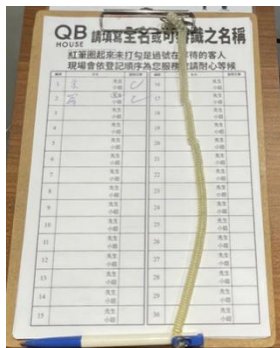 QB HOUSE 請填寫全名或可辨識之名稱
紅筆圈起來未打勾是過號在等待的客人
現場會依登記順序為您服務 請耐心等候
1 先生 小姐 16 先生 小姐
2 先生 小姐 17 先生 小姐
3 先生 小姐 18 先生 小姐
4 先生 小姐 19 先生 小姐
5 先生 小姐 20 先生 小姐
6 先生 小姐 21 先生 小姐
7 先生 小姐 22 先生 小姐
8 先生 小姐 23 先生 小姐
9 先生 小姐 24 先生 小姐
10 先生 小姐 25 先生 小姐
11 先生 小姐 26 先生 小姐
12 先生 小姐 27 先生 小姐
13 先生 小姐 28 先生 小姐
14 先生 小姐 29 先生 小姐
15 先生 小姐 30 先生 小姐